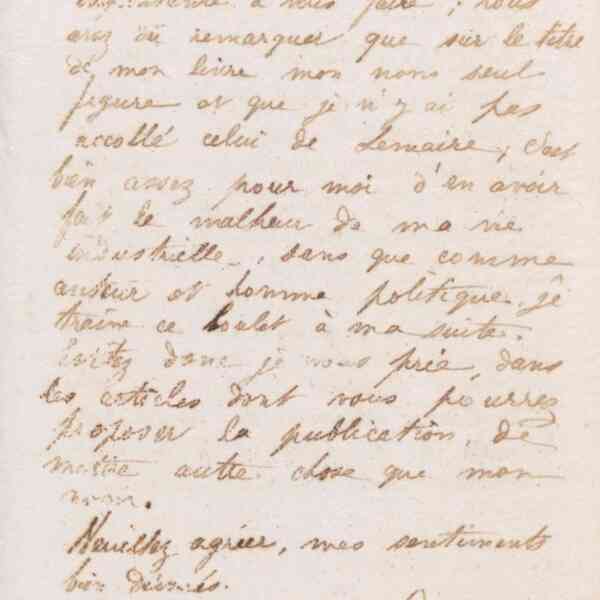 à vous faire ; vous
avez dû remarquer que sur le titre
de mon livre mon nom seul
figure et que je n'y ai pas
accollé celui de Lemaire, c'est
bien assez pour moi d'en avoir
fait le malheur de ma vie
industrielle, sans que comme
auteur et homme politique, je
traîne ce boulet à ma suite.
Evitez donc je vous prie, dans
les articles dont vous pourrez
proposer la publication, de
mettre autre chose que mon
nom.
Veuillez agréer, mes sentiments
bien dévoués.